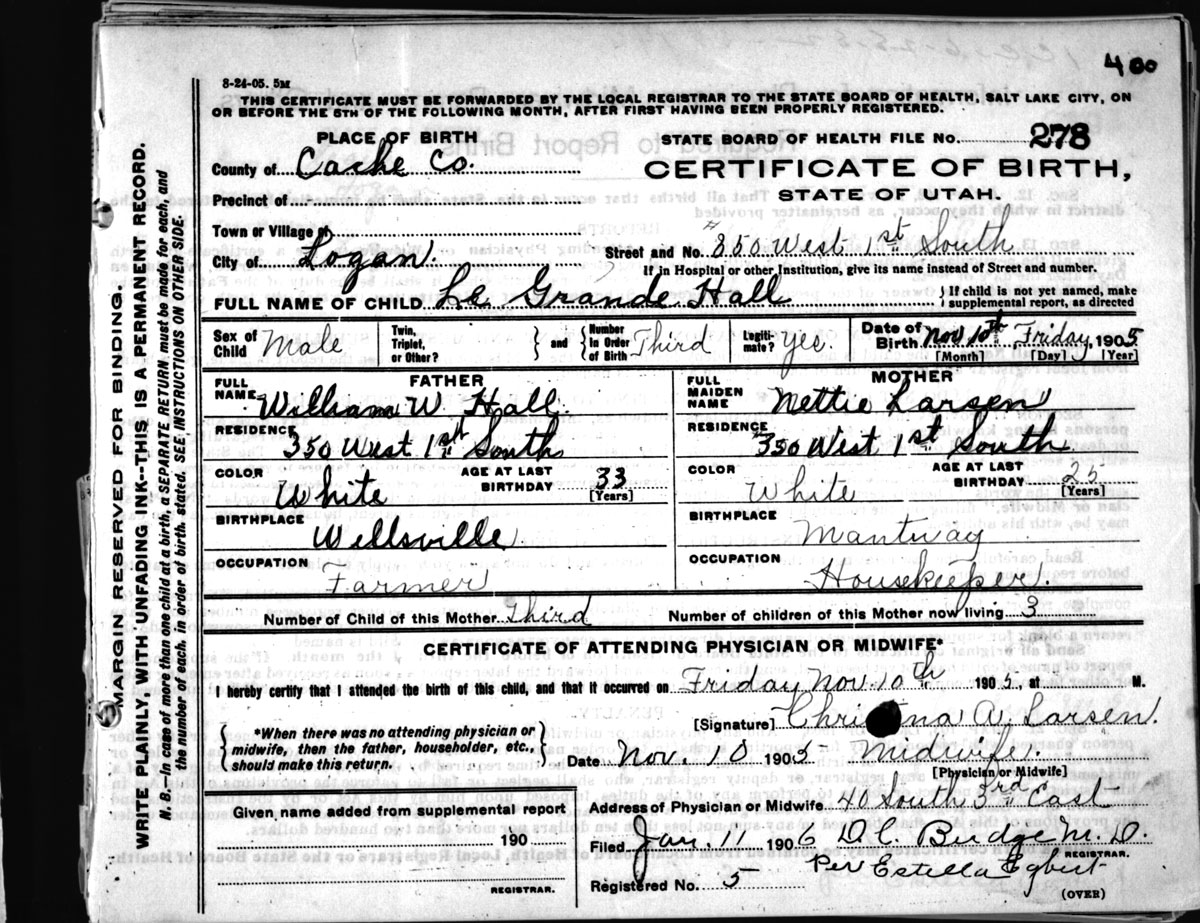 400
8-24-05. 5M
THIS CERTIFICATE MUST BE FORWARDED BY THE LOCAL REGISTRAR TO THE STATE BOARD OF HEALTH, SALT LAKE CITY, ON
OR BEFORE THE 5TH OF THE FOLLOWING MONTH, AFTER FIRST HAVING BEEN PROPERLY REGISTERED.
PLACE OF BIRTH
STATE BOARD OF HEALTH FILE No. 278
County of Cache Co.
CERTIFICATE OF BIRTH,
Precinct of
STATE OF UTAH.
Town or Village of
City of Logan.
Street and No. 350 West 1st South
If in Hospital or other Institution, give its name instead of Street and number.
FULL NAME OF CHILD Le Grande Hall
} If child is not yet named, make
} supplemental report, as directed
Sex of Child Male
Twin, Triplet, or Other?
} and {
Number In Order of Birth Third
Legiti-mate? Yes.
Date of Birth Nov. 10th Friday, 1905
[Month] [Day] [Year]
FATHER
FULL NAME William W. Hall.
RESIDENCE 350 West 1st South
COLOR White
AGE AT LAST BIRTHDAY 33
[Years]
BIRTHPLACE Wellsville
OCCUPATION Farmer
MOTHER
FULL MAIDEN NAME Nettie Larsen
RESIDENCE 350 West 1st South
COLOR White
AGE AT LAST BIRTHDAY 25
[Years]
BIRTHPLACE Mantuay
OCCUPATION Housekeeper.
Number of Child of this Mother Third
Number of children of this Mother now living 3
CERTIFICATE OF ATTENDING PHYSICIAN OR MIDWIFE*
I hereby certify that I attended the birth of this child, and that it occurred on Friday Nov. 10th 1905, at M.
*When there was no attending physician or
midwife, then the father, householder, etc.,
should make this return.
[Signature] Christina A. Larsen.
Date Nov. 10 1905 Midwife.
[Physician or Midwife]
Given name added from supplemental report
190
REGISTRAR.
Address of Physician or Midwife 40 South 3rd East
Filed Jan. 11 1906 D.C. Budge M.D.
REGISTRAR.
Per Estella Egbert
Registered No. 5
(OVER)
MARGIN RESERVED FOR BINDING.
WRITE PLAINLY, WITH UNFADING INK--THIS IS A PERMANENT RECORD.
N. B.--In case of more than one child at a birth, a SEPARATE RETURN must be made for each, and
the number of each, in order of birth, stated. SEE INSTRUCTIONS ON OTHER SIDE.